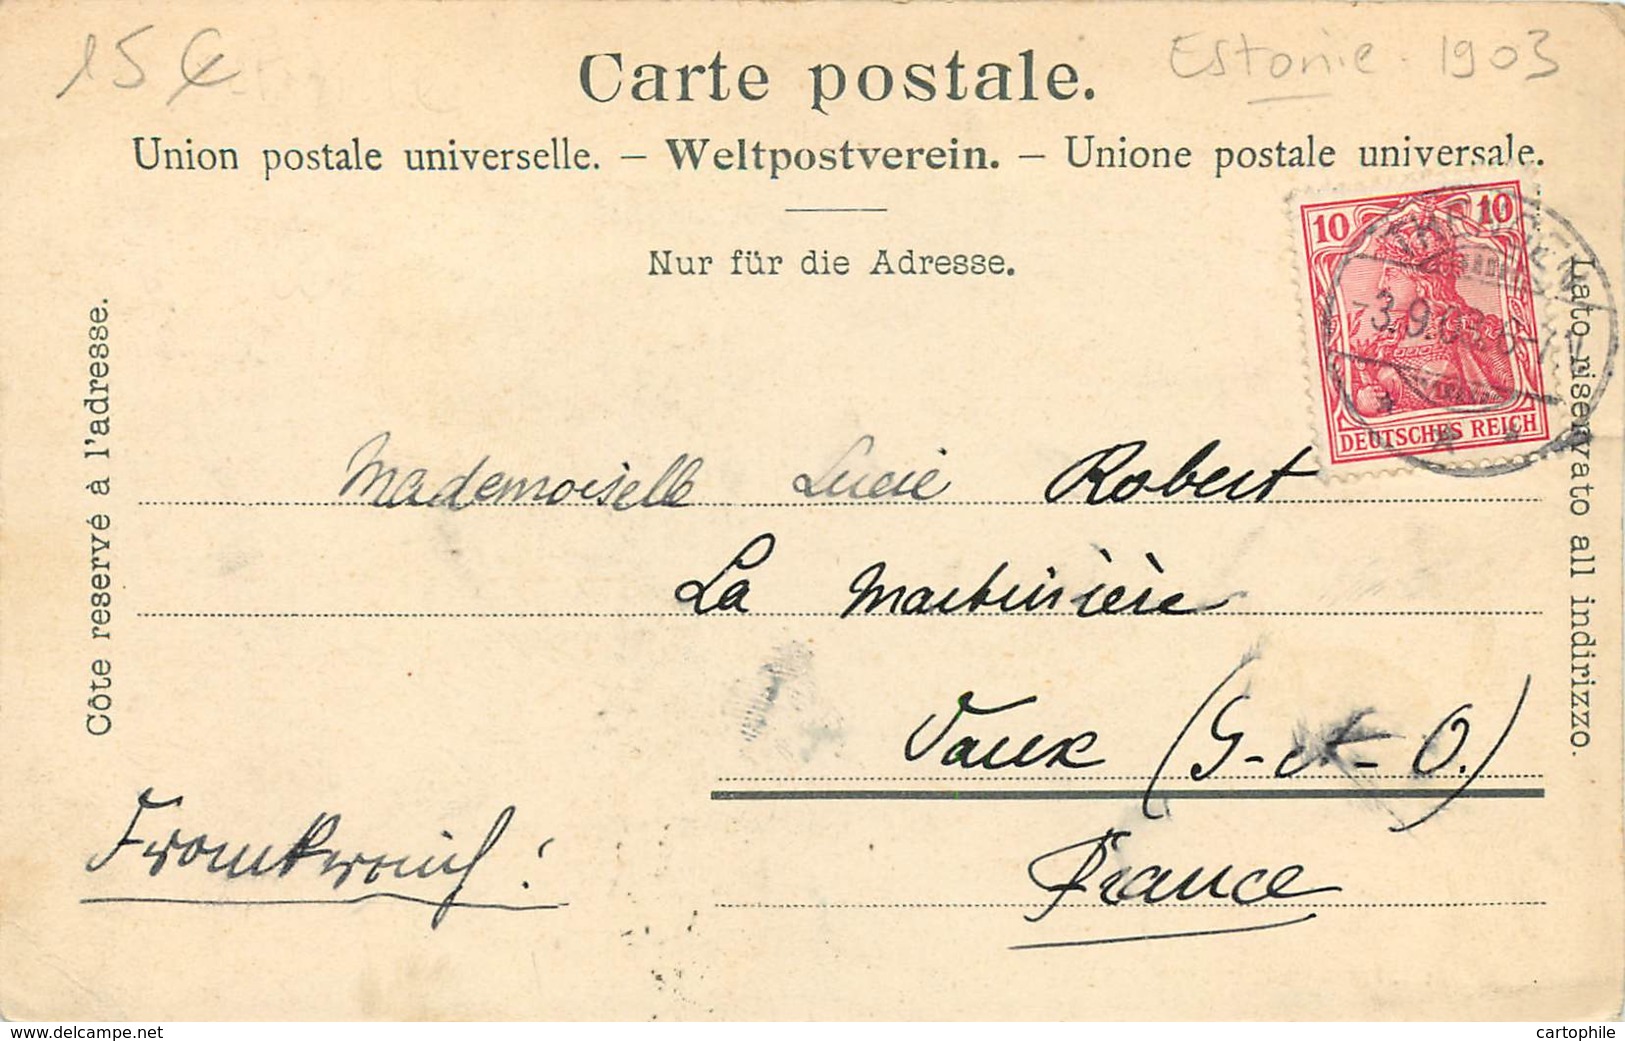 15 €
Estonie. 1903
Carte postale.
Union postale universelle. – Weltpostverein. – Unione postale universale.
Nur für die Adresse.
Côte reservé à l'adresse.
Lato riservato all indirizzo.
10 10
3.9.03.
DEUTSCHES REICH
Mademoiselle Lucie Robert
La Martinière
Vaux (S-et-O.)
Frankreich!
France
www.delcampe.net
cartophile